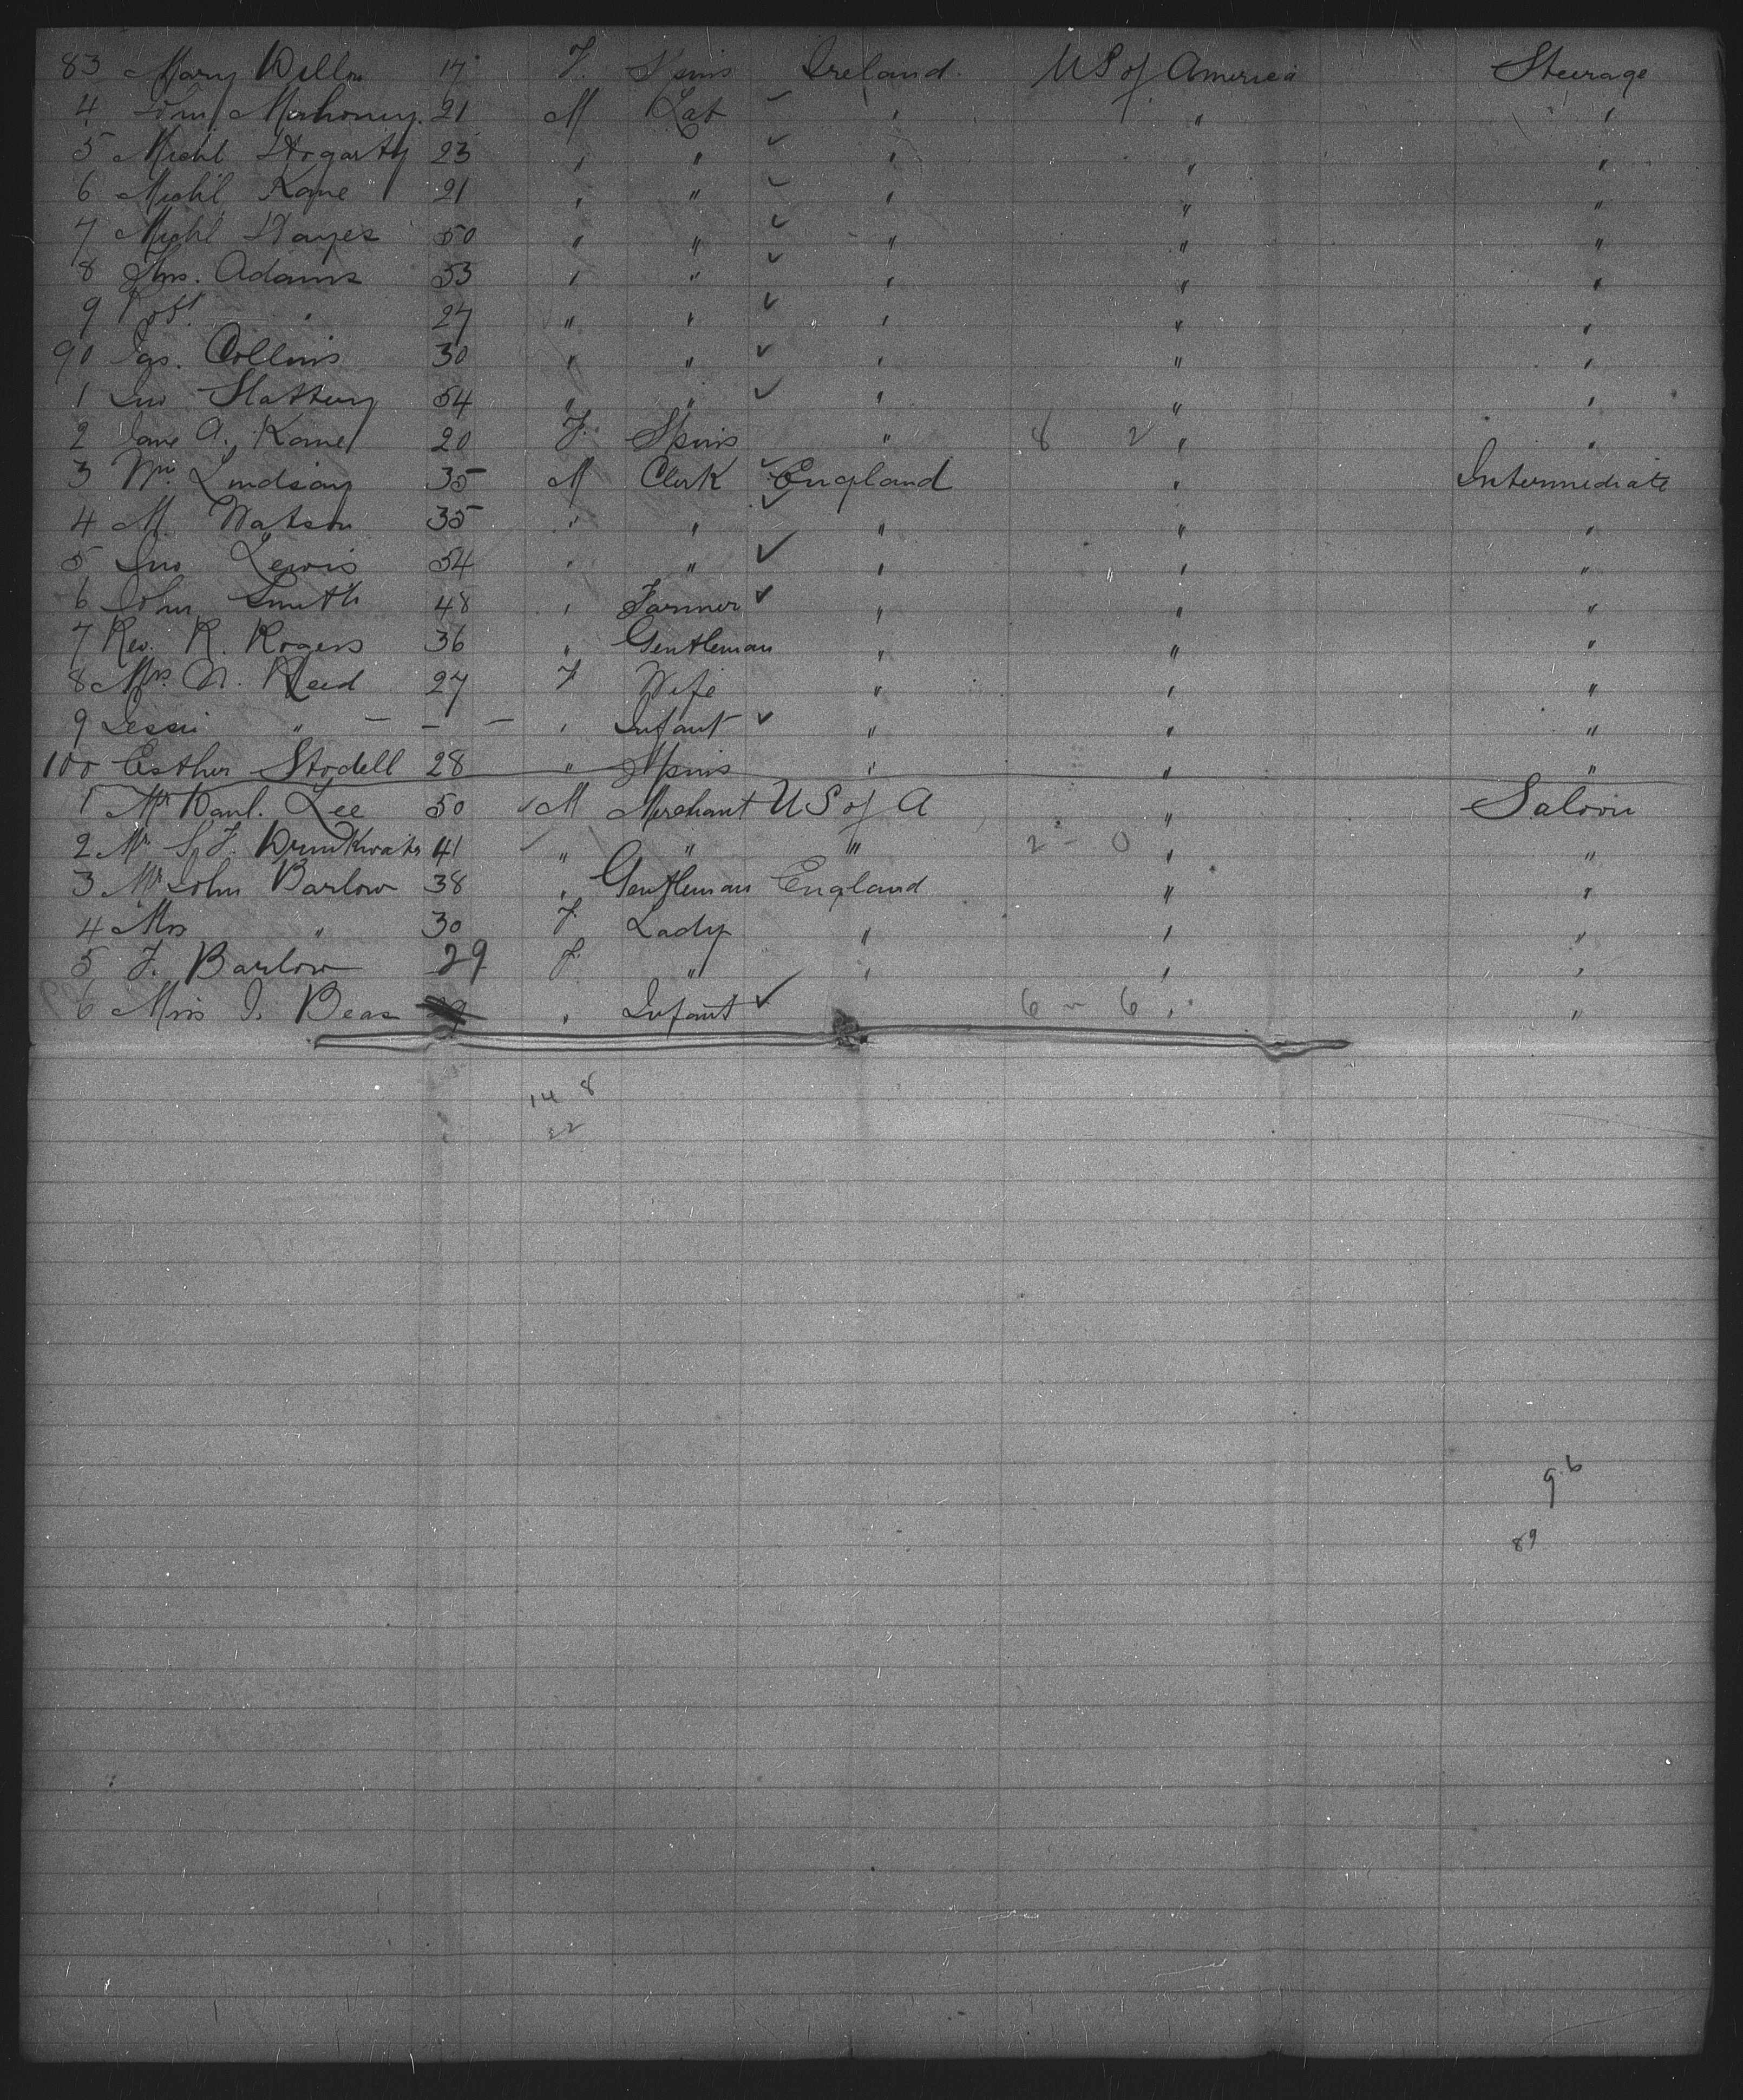 83 Mary Dillon 17 F. Spins Ireland. US of America Steerage
4 John Mahoney. 21 M Lab ✓ " " "
5 Michl Hogarty 23 " " ✓ " " "
6 Michl Kane 21 " " ✓ " " "
7 Michl Hayes 50 " " ✓ " " "
8 Thos. Adams 53 " " ✓ " " "
9 Robt. " 27 " " ✓ " " "
90 Jas. Collins 30 " " ✓ " " "
1 Jno Slattery 54 " " ✓ " " "
2 Jane A. Kane 20 F. Spins " 8 2 " "
3 Wm. Lindsay 35 M Clerk ✓ England " Intermediate
4 M. Watson 35 " " ✓ " " "
5 Jno Lewis 54 " " ✓ " " "
6 John Smith 48 " Farmer ✓ " " "
7 Rev. R. Rogers 36 " Gentleman " " "
8 Mrs. N. Reed 27 F Wife " " "
9 Jessie " — — — " Infant ✓ " " "
100 Esther Stodell 28 " Spins " " "
1 Mr Danl. Lee 50 ✓ M Merchant US of A " Saloon
2 Mr S. F. Drinkwater 41 ✓ " " " 2 - 0 " "
3 Mr John Barlow 38 " Gentleman England " "
4 Mrs " 30 F Lady " " "
5 F. Barlow 29 F " " " "
6 Miss I. Beas " Infant ✓ 6 - 6 " "
14 8
22
9.6
89